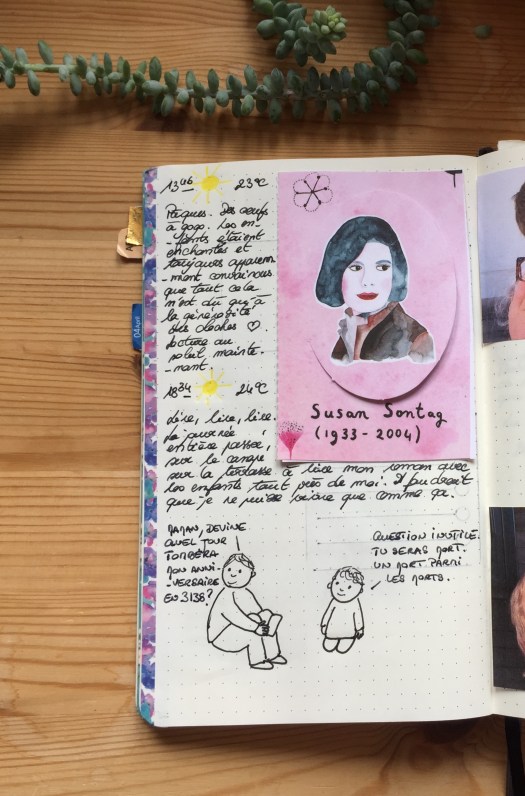 13:46 23°C
Pâques. Des œufs
à gogo. Les en-
-fants étaient
enchantés et
toujours apparem-
-ment convaincus
que tout cela
n'est dû qu'à
la générosité
des cloches ♡.
Lecture au
soleil mainte-
-nant.
18:34 24°C
Lire, lire, lire.
La journée
entière passée
sur le canapé
sur la terrasse à lire mon roman avec
les enfants tout près de moi. Il faudrait
que je ne puisse vivre que comme ça.
Susan Sontag
(1933-2004)
MAMAN, DEVINE
QUEL JOUR
TOMBERA
MON ANNI-
-VERSAIRE
EN 3138?
QUESTION INUTILE.
TU SERAS MORT.
UN MORT PARMI
LES MORTS.